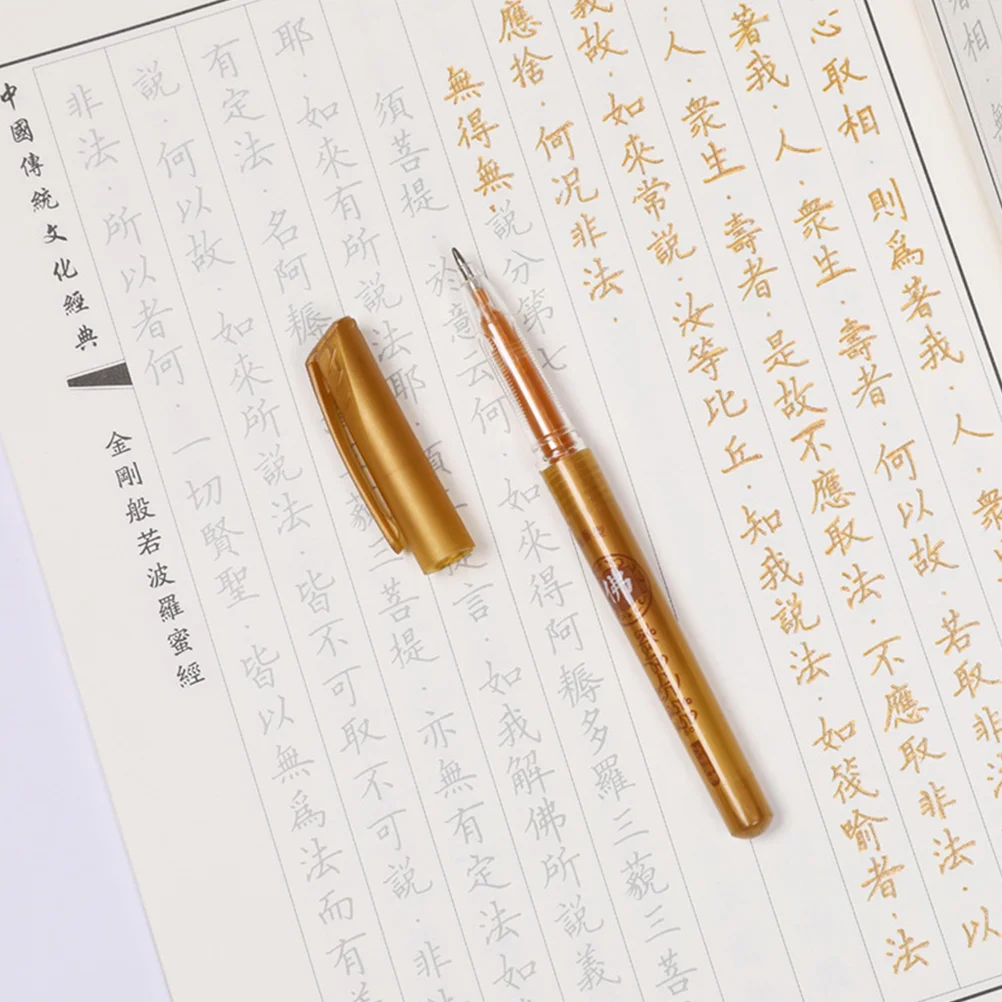 心取相·則爲著我·人·衆
著我·人·衆生·壽者·何以故·若取非
人·衆生·壽者·是故不應取法·不應取非法·以
義故·如來常說·汝等比丘·知我說法·如筏喻者·法
應捨·何況非法·
無得無·說分第七
須菩提·於意云何·如來得阿耨多羅三藐三菩
耶·如來有所說法耶·須提言·如我解佛所說義
有定法·名阿耨藐三菩提·亦無有定法如
說·何以故·如來所說法·皆不可取不可說·非
非法·所以者何·一切賢聖·皆以無爲法而有
中國傳統文化經典
金剛般若波羅蜜經
佛